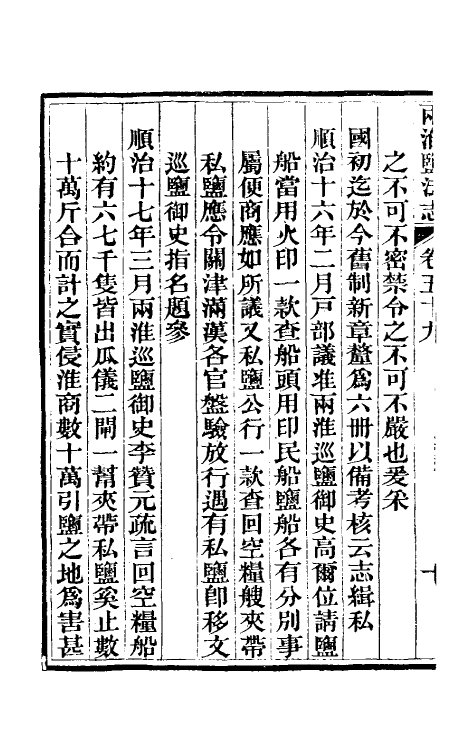 兩淮鹽法志 卷五十九
之不可不密禁令之不可不嚴也爰釆
國初迄於今舊制新章釐爲六冊以備考核云志緝私
順治十六年二月戸部議准兩淮巡鹽御史高爾位請鹽
船當用火印一款查船頭用印民船鹽船各有分別事
屬便商應如所議又私鹽公行一款查回空糧艘夾帶
私鹽應令關津滿漢各官盤驗放行遇有私鹽卽移文
巡鹽御史指名題參
順治十七年三月兩淮巡鹽御史李贊元疏言回空糧船
約有六七千隻皆出瓜儀二閘一幫夾帶私鹽奚止數
十萬斤合而計之實侵淮商數十萬引鹽之地爲害甚